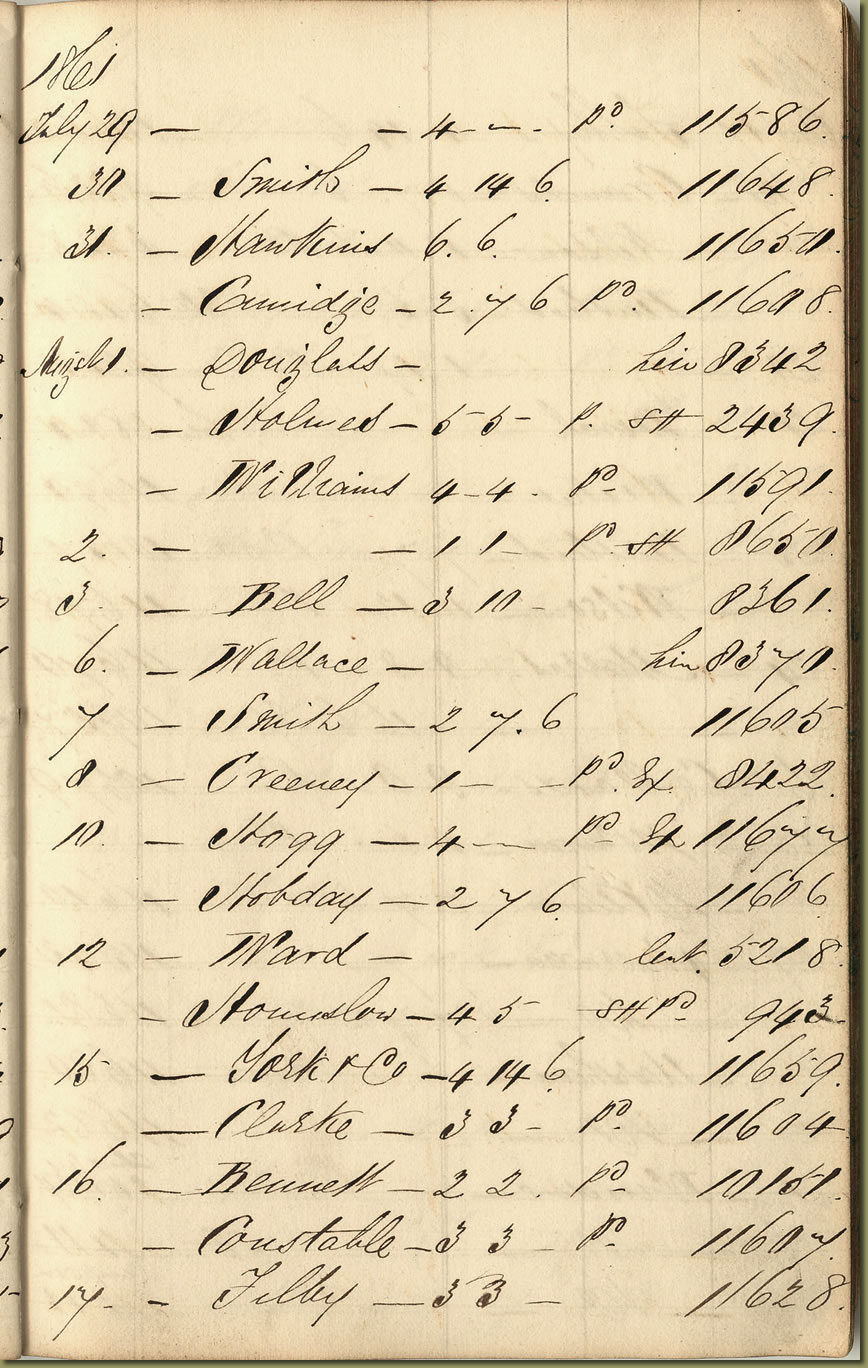 1861
July 29 — — 4 - - . Pd. 11586.
30 — Smith — 4 14 6. 11648.
31. — Hawkins 6. 6. 11650.
— Camidge — 2. 7 6 Pd. 11608.
Augst 1. — Douglass — hire 8342
— Holmes — 5 5 - P. SH 2439.
— Williams 4 - 4 . Pd- 11591.
2. — — 1 1 - Pd SH 8650.
3. — Bell — 3 10 - 8361.
6. — Wallace — hire 8370.
7 — Smith — 2 7. 6 11605
8 — Creeney — 1 — - Pd. Ex. 8422.
10. — Hogg — 4 — Pd- Ex 11677
— Hobday — 2 7 6. 11606.
12 — Ward — lent. 5218.
— Hounslow — 4 5 SH Pd- 943-
15 — York & Co — 4 14 6. 11659.
— Clarke — 3 3 - Pd- 11604
16. — Bennett — 2 2 . Pd- 10151.
— Constable — 3 3 - Pd- 11607.
17. - Filby — 3 3 — 11628.